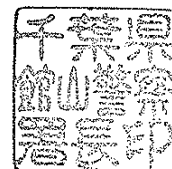 千葉県
館山警察
署長印